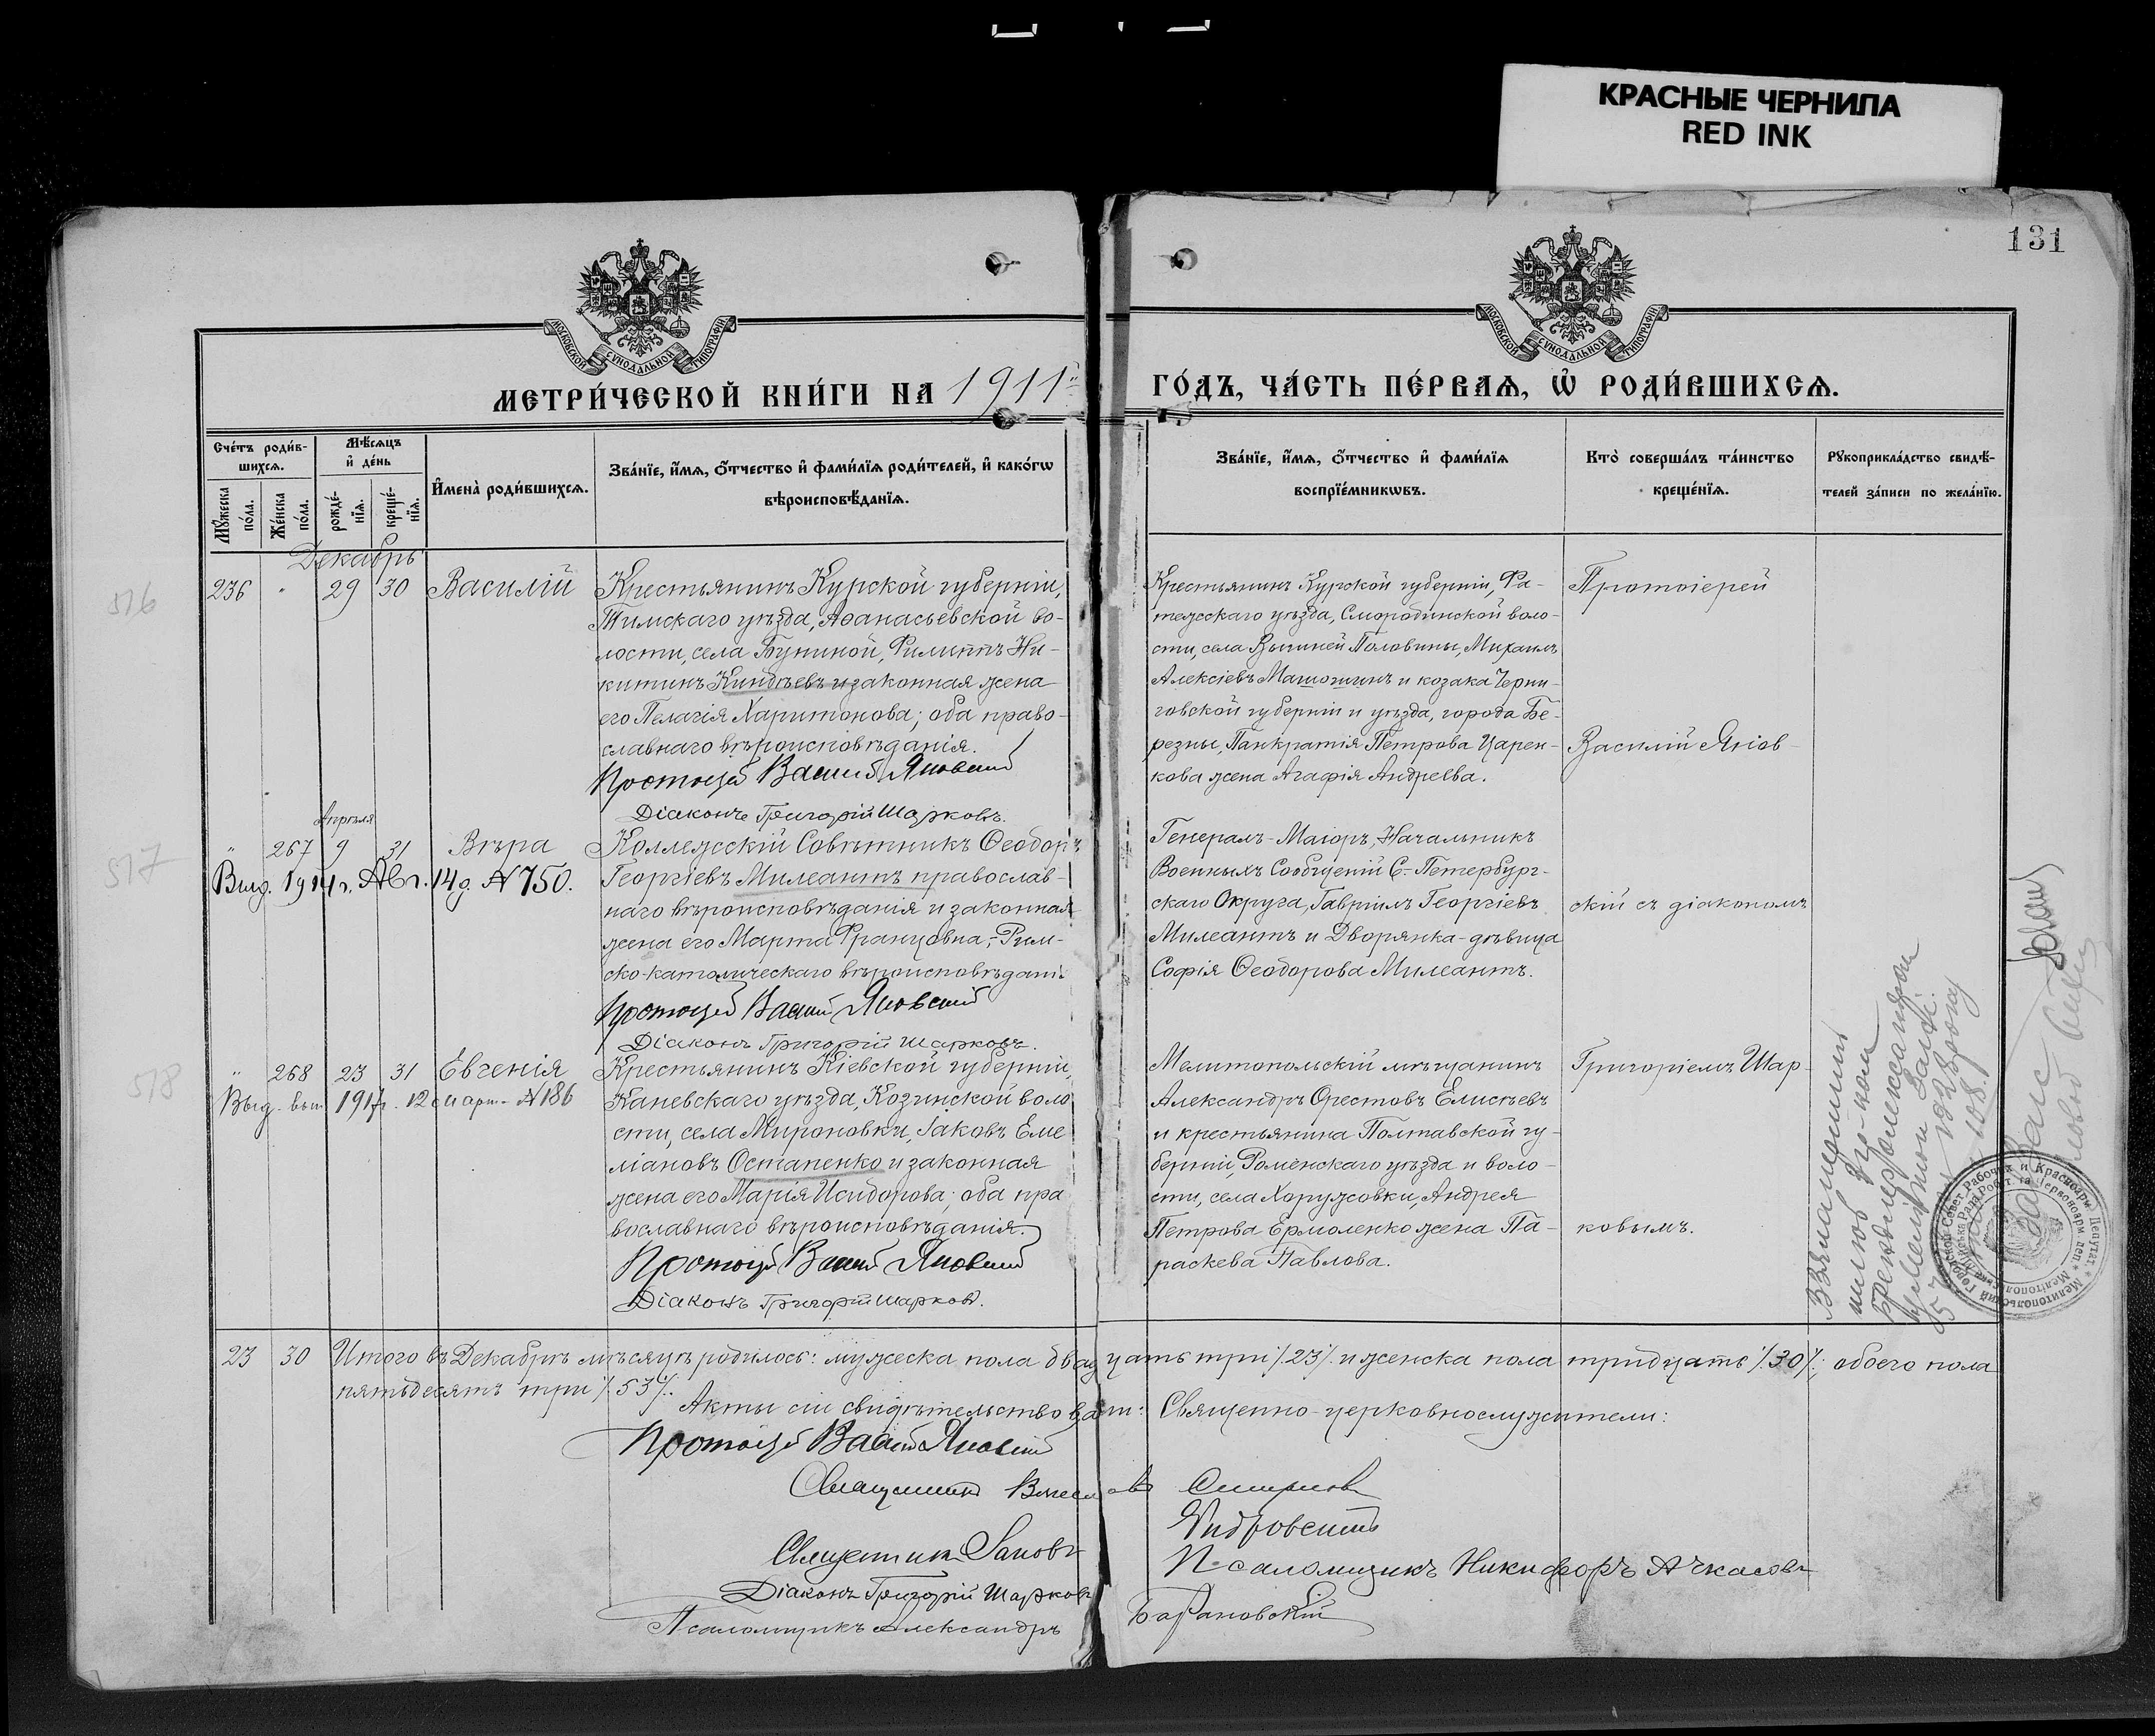 КРАСНЫЕ ЧЕРНИЛА
RED INK
131
МОСКОВСКОЙ СѴНОДАЛЬНОЙ ТИПОГРАФІИ
МОСКОВСКОЙ СѴНОДАЛЬНОЙ ТИПОГРАФІИ
МЕТРИ́ЧЕСКОЙ КНИ́ГИ НА 1911й
ГО́ДЪ, ЧА́СТЬ ПЕ́РВАѦ, Ѡ҆ РОДИ́ВШИХСѦ.
Сче́тъ роди́в-
шихсѧ.
Мѣ́сѧцъ
и҆ де́нь
Мꙋ́жеска
по́ла.
Же́нска
по́ла.
рожде́-
нїѧ.
креще́-
нїѧ.
И҆мена̀ роди́вшихсѧ.
Зва́нїе, и҆́мѧ, ѻ҆́тчество и҆ фами́лїѧ роди́телей, и҆ како́гѡ
вѣроисповѣ́данїѧ.
Зва́нїе, и҆́мѧ, ѻ҆́тчество и҆ фами́лїѧ
воспрїе́мникѡвъ.
Кто̀ соверша́лъ та́инство
креще́нїѧ.
Рꙋкоприкла́дство свидѣ́-
телей за́писи по жела́нїю.
Декабрь
516
236 " 29 30 Василій
Крестьянинъ Курской губерніи,
Тимскаго уѣзда, Аѳанасьевской во-
лости, села Буниной, Филиппъ Ни-
китинъ Киндѣевъ и законная жена
его Пелагія Харитонова; оба право-
славнаго вѣроисповѣданія.
Протоіерей Василій Яновский
Діаконъ Григорій Шарковъ.
Крестьянинъ Курской губерніи, Фа-
тежскаго уѣзда, Смородинской воло-
сти, села Вышней Половины, Михаилъ
Алексіевъ Машошинъ и козака Черни-
говской губерніи и уѣзда, города Бе-
резны, Панкратія Петрова Царен-
кова жена Агафія Андреева.
Протоіерей
Василій Янов-
517
Апрѣля
" 267 9 31 Вѣра
Выд. 1914 г. Авг. 14 д. № 750.
Коллежскій Совѣтникъ Ѳеодоръ
Георгіевъ Милеантъ православ-
наго вѣроисповѣданія и законная
жена его Марта Францовна,- Рим-
ско-католическаго вѣроисповѣданія
Протоіерей Василій Яновский
Діаконъ Григорій Шарковъ.
Генералъ-Маіоръ, Начальникъ
Военныхъ Сообщеній С.-Петербург-
скаго Округа, Гавріилъ Георгіевъ
Милеантъ и Дворянка-дѣвица
Софія Ѳеодорова Милеантъ.
скій съ діакономъ
518
" 268 23 31 Евгенія
Выд. вып. 1917 г. 12 март. № 186
Крестьянинъ Кіевской губерніи,
Каневскаго уѣзда, Козинской воло
сти, села Мироновки, Іаковъ Еме
ліановъ Остапенко и законная
жена его Марія Исидорова; оба пра
вославнаго вѣроисповѣданія.
Протоіерей Василій Яновский
Діаконъ Григорій Шарковъ.
Мелитопольскій мѣщанинъ
Александръ Орестовъ Елисѣевъ
и крестьянина Полтавской гу-
берніи, Роменскаго уѣзда и воло-
сти, села Хоружовки, Андрея
Петрова Ермоленко жена Па-
раскева Павлова.
Григоріемъ Шар-
ковымъ.
23 30 Итого въ Декабрѣ мѣсяцѣ родилось: мужеска пола двадцать три /23/ и женска пола тридцать /30/, обоего пола
пятьдесятъ три /53/.
Акты сіи свидѣтельствовали: Священно-церковнослужители:
Протоіерей Василій Яновский
Священникъ Смирновъ
Священникъ
Діаконъ Григорій Шарковъ
Псаломщикъ Никифоръ Ачкасовъ
Псаломщикъ Александръ Барановскій